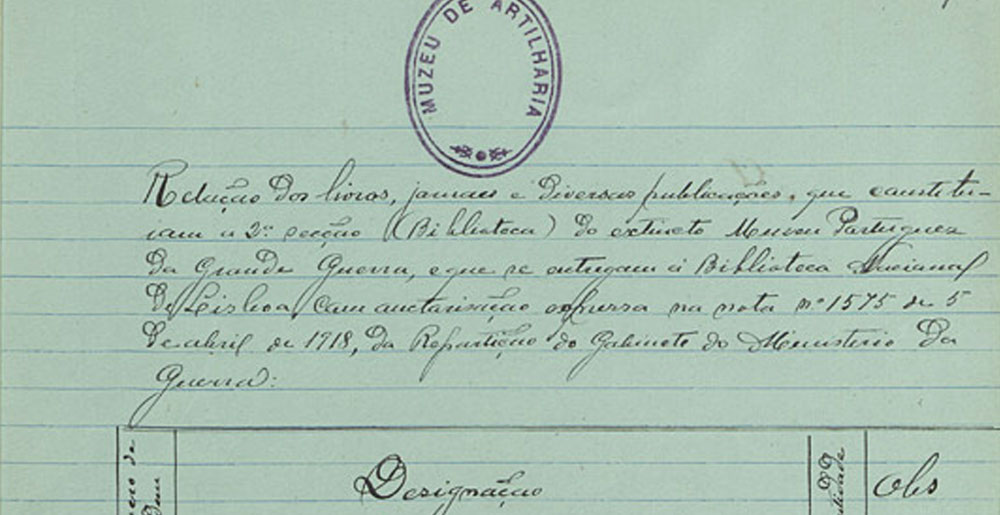 MUZEU DE ARTILHARIA
Relação dos livros, jornaes e diversas publicações, que constitu-
iam a 2ª secção (Bibliotéca) do extincto Museu Portuguez
da Grande Guerra, e que se entregam á Biblioteca Nacional
de Lisboa, com auctorisação expressa na nota nº 1575 de 5
de abril de 1918, da Repartição do Gabinete do Ministerio da
Guerra:
Designação
Obs